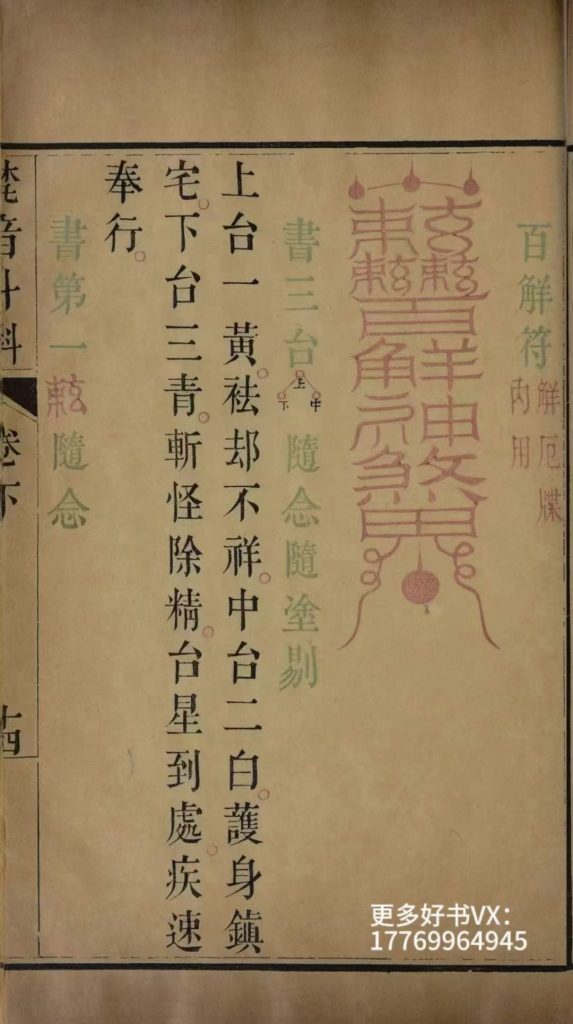 百解符
解厄牒
內用
書三台
上
中
下
隨念隨塗剔
上台一黃祛却不祥中台二白護身鎮
宅下台三青斬怪除精台星到處疾速
奉行
書第一
隨念
卷下
十四
更多好书VX：
17769964945